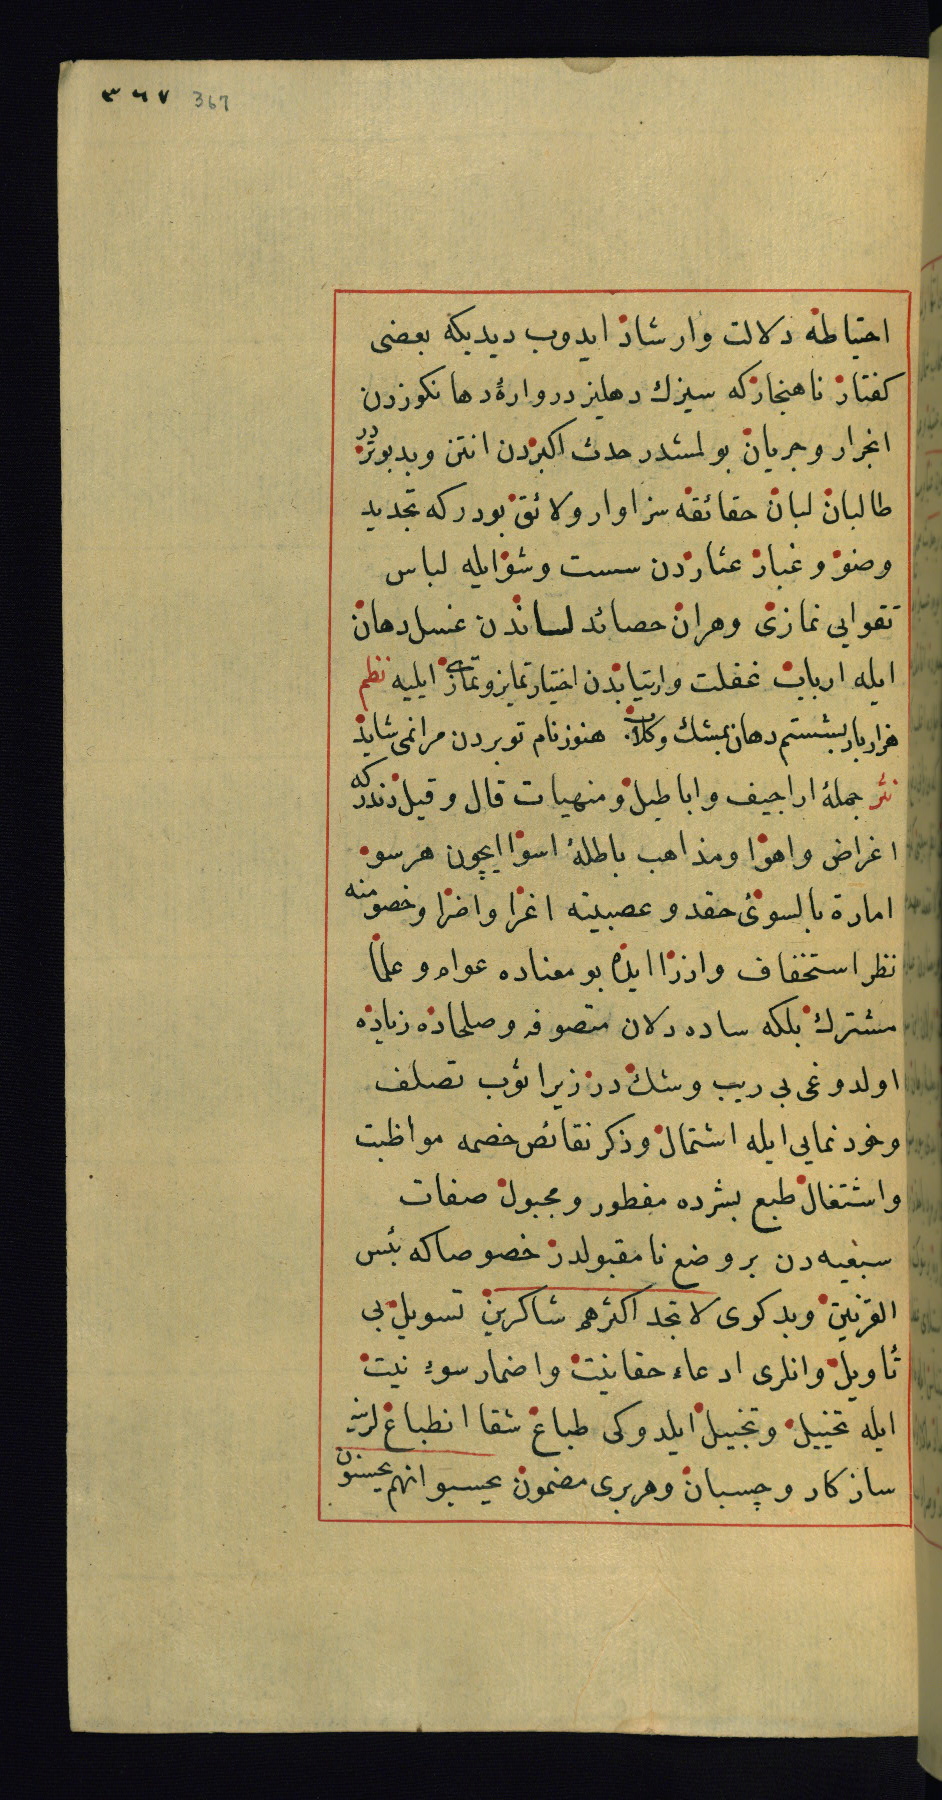 ٣٦٧ 367
احتیاطه دلالت وارشاد ایدوب دیدیکه بعضی
کفتار ناهنجار که سیزك دهلیز دروازهٔ دهانکوزدن
انجرار و جریان بولمشدر حدث اکبردن انتن وبدبوتردر
طالبان لبان حقائقه سزاوار ولائق بودر که تجدید
وضوء و غبار عثاردن سست وشو ایله لباس
تقوایی نمازی وهران حصائد لساندن غسل دهان
ایله ارباب غفلت وارتیابدن اختیار تمایز و تمازی ایلیه نظم
هزار بار بشستم دهان بمشك و کلاب هنوز نام تو بردن مرا نمی شاید
نثر جملهٔ اراجیف واباطیل و منهیات قال و قیلدندر که
اغراض واهوا ومذاهب باطلهٔ اسوا ایچون هر سو
امارة بالسوئ حقد و عصبیته اغرا واضرا وخصومنه
نظر استخفاف وازرا ایده بو معناده عوام و علما
مشترك بلکه ساده دلان متصوفه و صلحاده زیاده
اولدوغی بی ریب وشكدر زیرا ثوب تصلف
وخودنمایی ایله اشتمال وذکر نقائص خصمه مواظبت
واشتغال طبع بشرده مفطور و مجبول صفات
سبعیه دن بر وضع نامقبولدر خصوصا که بئس
القرین وبدکوی لا تجد اکثرهم شاکرین تسویل بی
تأویل وانلری ادعاء حقانیت واضمار سوء نیت
ایله تخییل و تجییل ایلدوکی طباع شقا انطباع لرینه
سازکار و چسبان وهربری مضمون یحسبوا انهم یحسنون